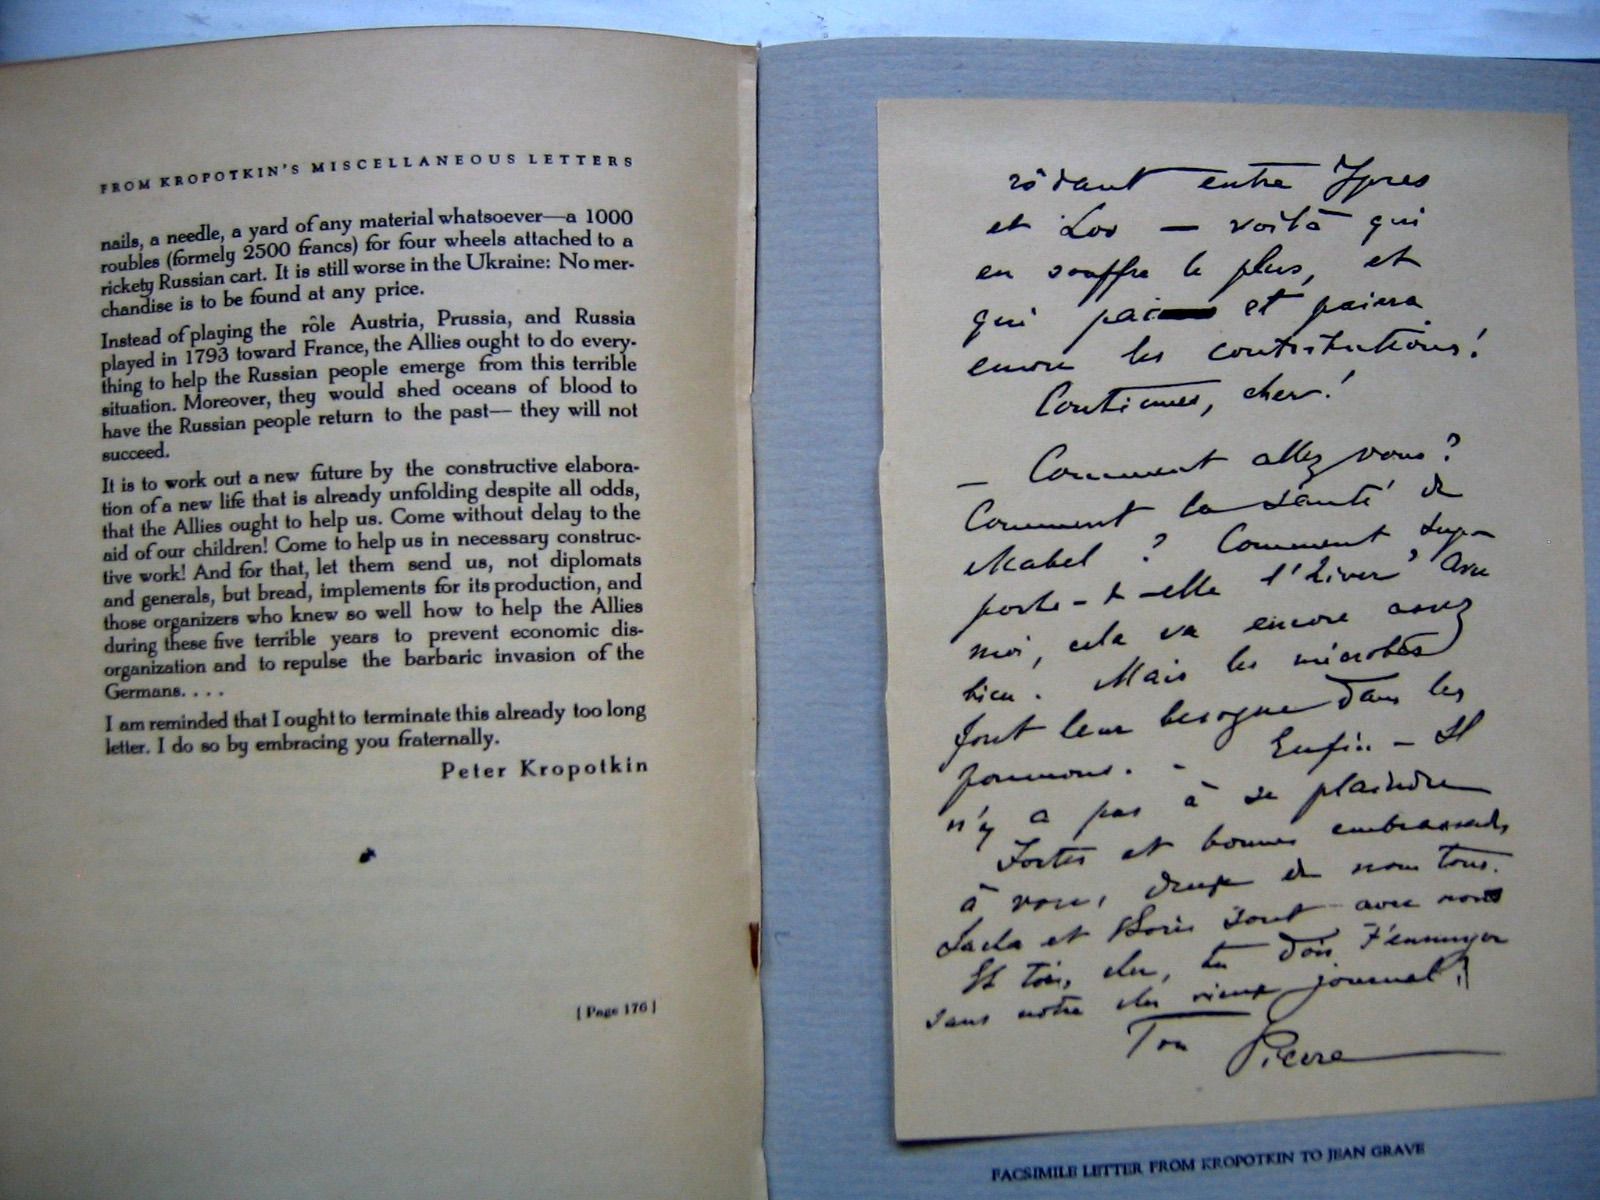 FROM KROPOTKIN'S MISCELLANEOUS LETTERS
nails, a needle, a yard of any material whatsoever—a 1000
roubles (formely 2500 francs) for four wheels attached to a
rickety Russian cart. It is still worse in the Ukraine: No mer-
chandise is to be found at any price.
Instead of playing the rôle Austria, Prussia, and Russia
played in 1793 toward France, the Allies ought to do every-
thing to help the Russian people emerge from this terrible
situation. Moreover, they would shed oceans of blood to
have the Russian people return to the past— they will not
succeed.
It is to work out a new future by the constructive elabora-
tion of a new life that is already unfolding despite all odds,
that the Allies ought to help us. Come without delay to the
aid of our children! Come to help us in necessary construc-
tive work! And for that, let them send us, not diplomats
and generals, but bread, implements for its production, and
those organizers who knew so well how to help the Allies
during these five terrible years to prevent economic dis-
organization and to repulse the barbaric invasion of the
Germans. . . .
I am reminded that I ought to terminate this already too long
letter. I do so by embracing you fraternally.
Peter Kropotkin
[ Page 176 ]
rôdant entre Ypres
et Loo — voilà qui
en souffre le plus, et
qui et paiera
encore les contributions!
Continues, cher!
— Comment allez vous?
Comment la santé de
Mabel ? Comment sup-
porte-t-elle l'hiver? Avec
moi, cela va encore assez
bien. Mais les microbes
font leur besogne dans les
poumons. - Enfin - Il
n'y a pas à se plaindre
Fortes et bonnes embrassades
à vous, deux de nous tous.
Sacha et Boris sont avec nous
Et toi, cher, tu dois t'ennuyer
sans notre cher vieux journal!
Ton Pierre
FACSIMILE LETTER FROM KROPOTKIN TO JEAN GRAVE